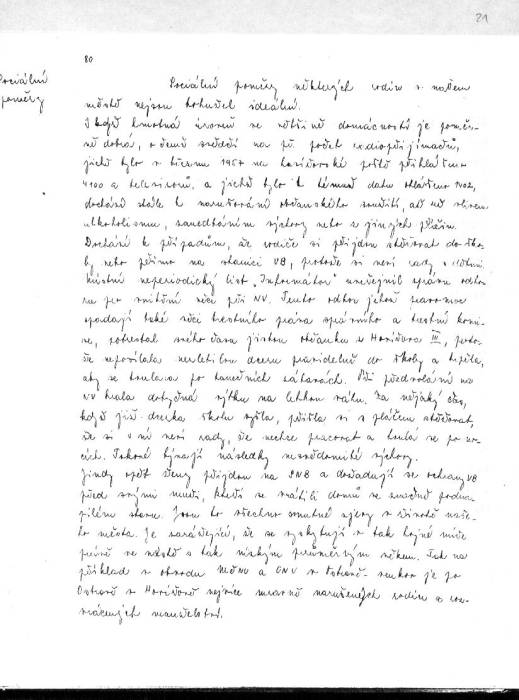 21
80
Sociální
poměry
Sociální poměry některých rodin v našem
městě nejsou bohužel ideální.
I když hmotná úroveň ve většině domácností je poměr-
ně dobrá, o čemž svědčí na př. počet radiopřijímačů,
jichž bylo v březnu 1957 na havířovské poště přihlášeno
4100 a televisorů, a jichž bylo k témuž datu ohlášeno 702,
dochází stále k narušování občanského soužití, ať už vlivem
alkoholismu, zanedbáním výchovy nebo z jiných příčin.
Dochází k případům, že rodiče si přijdou stěžovat do ško-
ly, nebo přímo na stanici VB, protože si není rady s dětmi.
Místní neperiodický list, Informátor uveřejnil zprávu odbo-
ru pro vnitřní věci při NV. Tento odbor, jehož pravomoc
spadají také věci trestního práva správního a trestní komi-
se, potrestal svého času jistou občanku z Havířova III, proto-
že neposílala neteř dceru pravidelně do školy a trpěla,
aby se toulala po tanečních zábavách. Při předvolání na
NV brala dotyčná výtku na lehkou váhu. Za nějaký čas,
když již dcerka školu vyšla, přišla si s pláčem stěžovat,
že si s ní není rady, že nechce pracovat a toulá se po no-
cích. Takové bývají následky nesvědomité výchovy.
Jindy opět ženy přijdou na VB a dožadují se ochrany VB
před svými muži, kteří se vrátili domů ve značně podna-
pilém stavu. Jsou to všechno smutné zjevy v životě naše-
ho města. Je zarážející, že se vyskytují v tak hojné míře
právě ve městě s tak nízkým průměrným věkem. Tak na
příklad v obvodu MěNV a ONV v Ostravě-venkov je po
Ostravě v Havířově nejvíce mravně narušených rodin a roz-
vrácených manželství.